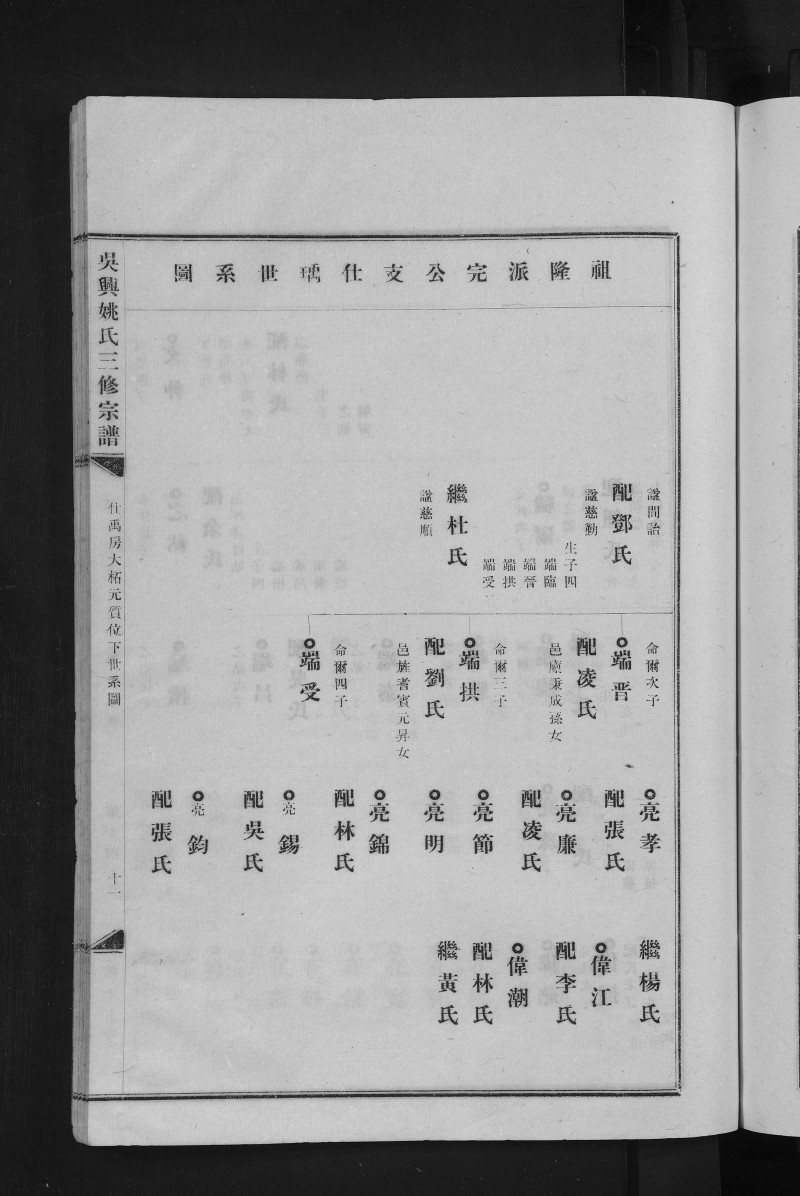 祖隆派完公支仕瑀世系圖
諡問詒
配鄧氏
諡慈勤
生子四
端臨
端晉
端拱
端受
繼杜氏
諡慈順
命爾次子
端晉
配凌氏
邑庠秉成孫女
命爾三子
端拱
配劉氏
邑旌耆賓元昇女
命爾四子
端受
亮孝
配張氏
亮廉
配凌氏
亮節
亮明
亮錦
配林氏
亮錫
配吳氏
亮鈞
配張氏
繼楊氏
偉江
配李氏
偉潮
配林氏
繼黃氏
吳興姚氏三修宗譜
仕禹房大柘元質位下世系圖
十一